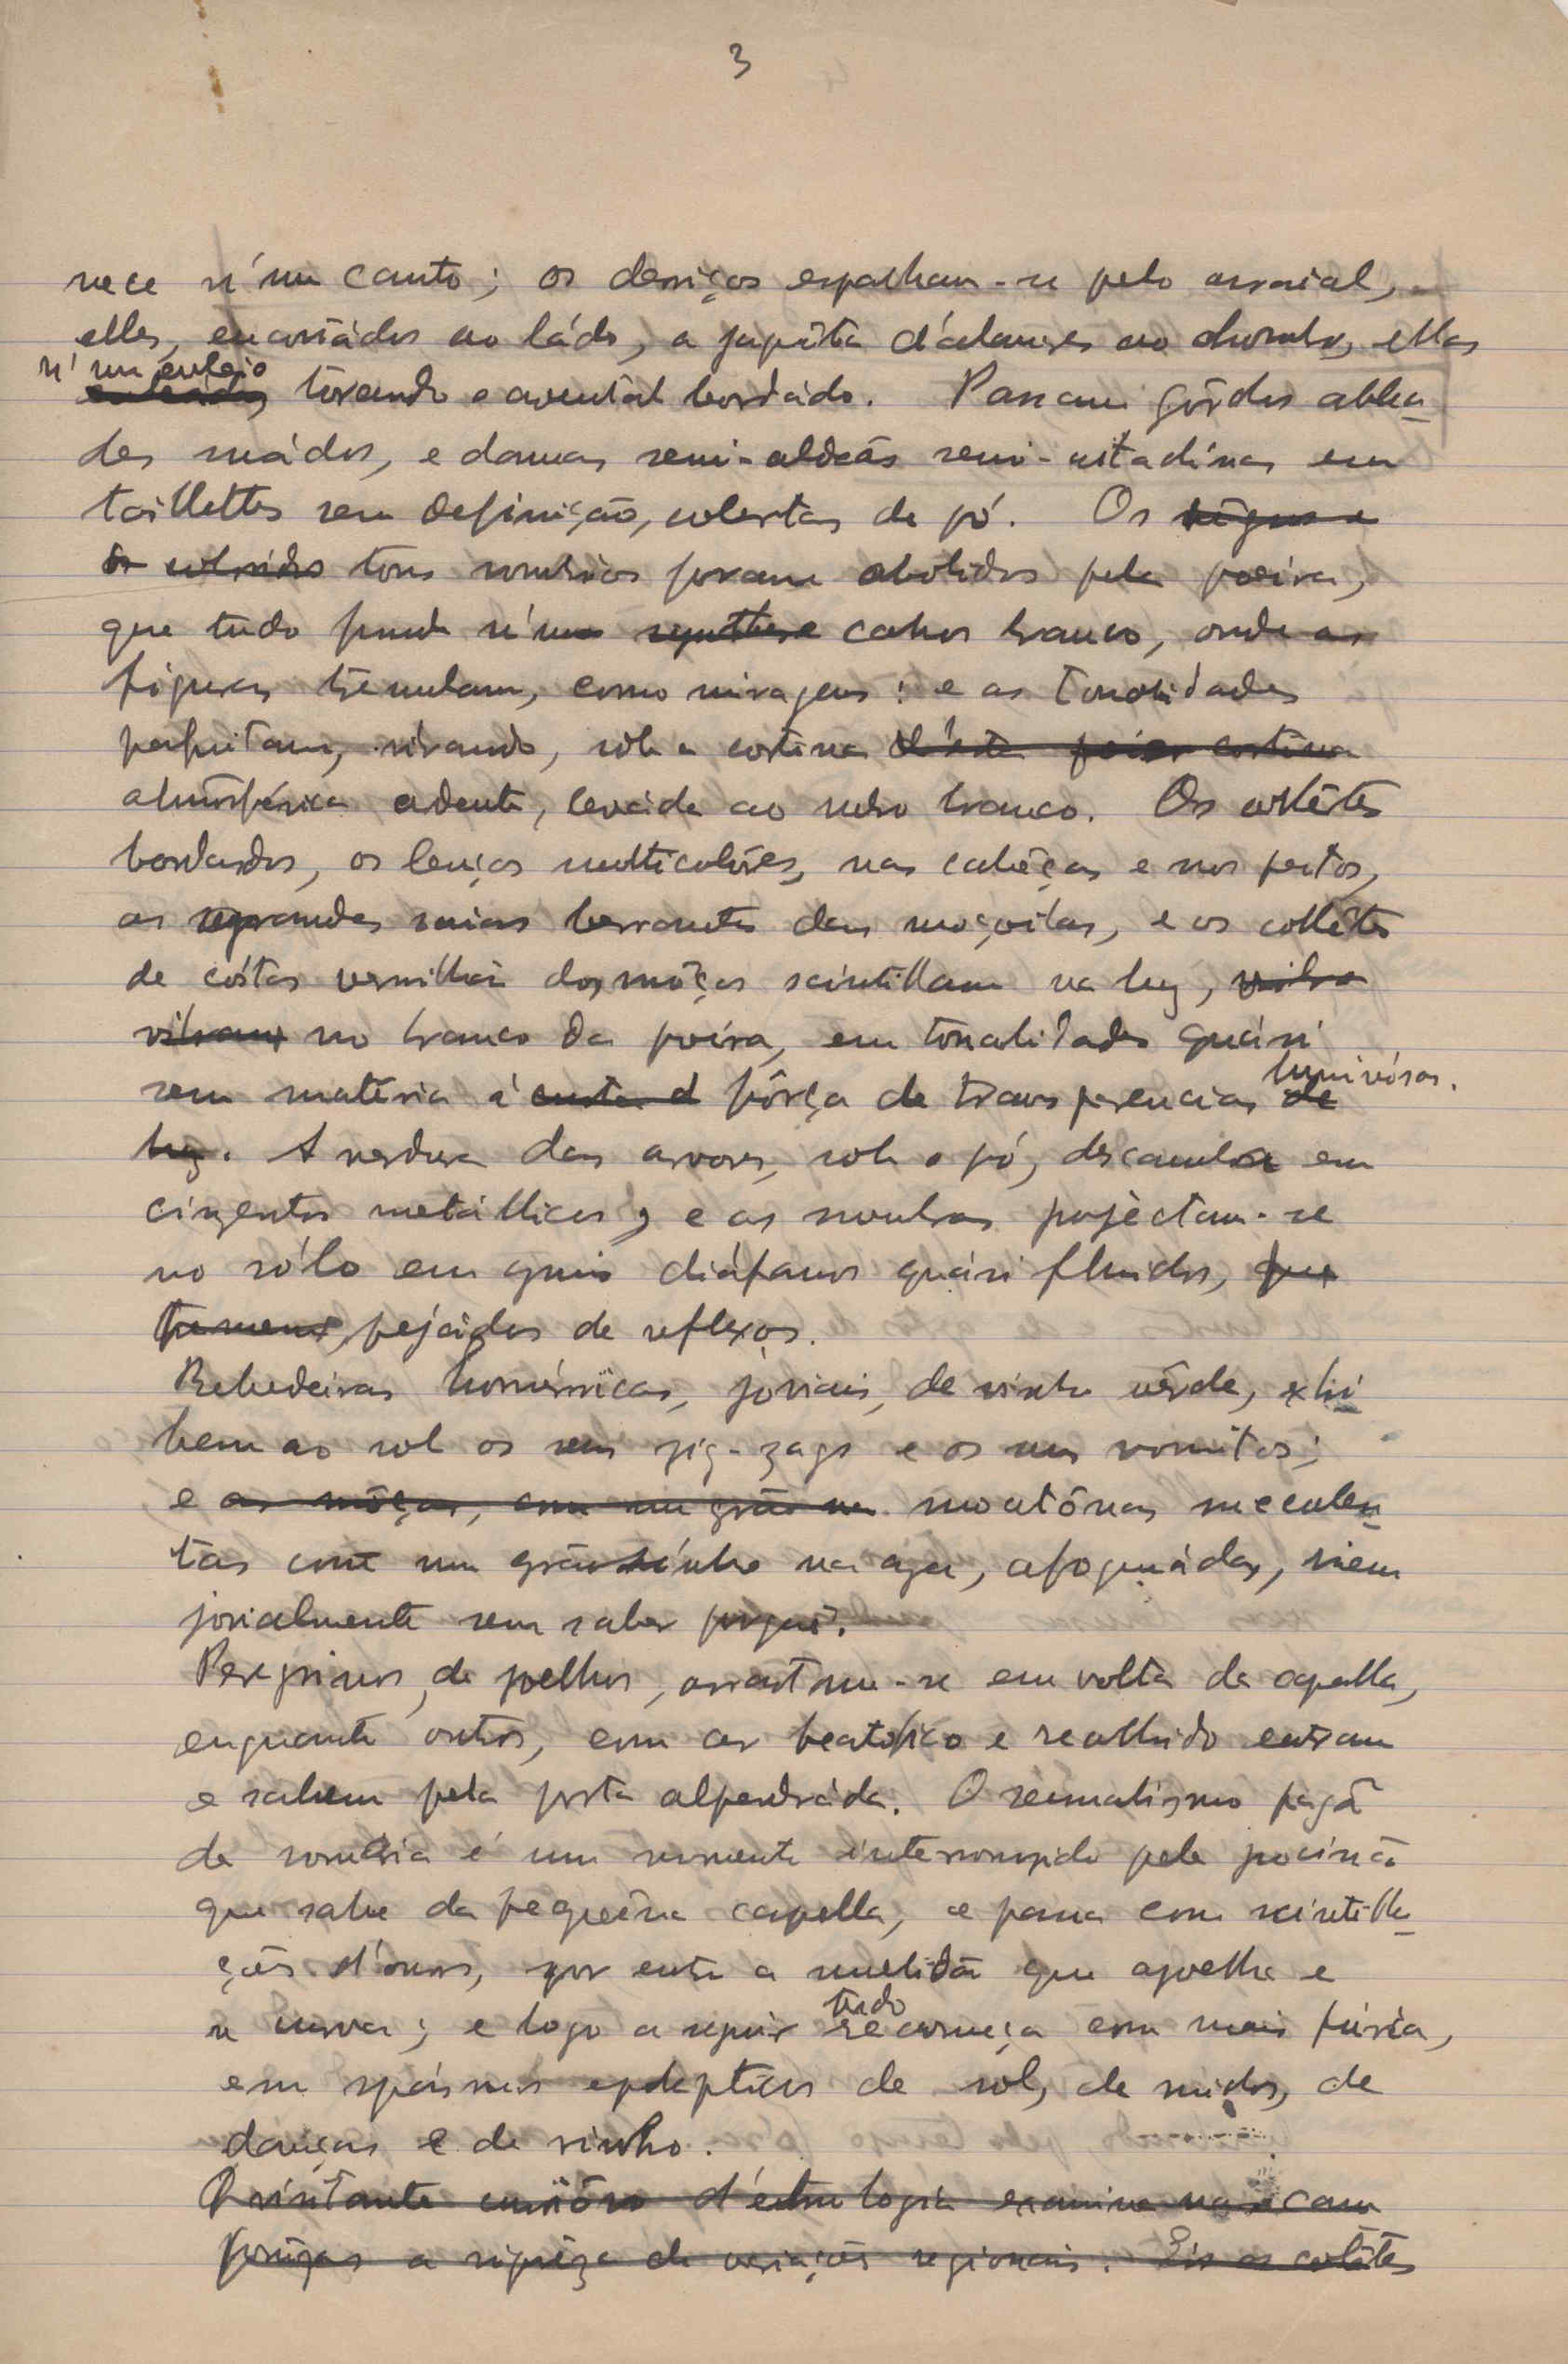 3
nece n'um canto; os derriços espalham-se pelo arraial,
elles, encostádos ao ládo, a jaquêta d'alamares ao hombro, ellas
n'um enleio
torcendo o avental bordádo. Passam górdos abba-
des suádos, e damas semi-aldeãs semi-citadinas em
toillettes sem definição, cobertas de pó. Os
os tons sombrios foram abolidos pela poeira,
que tudo funde n'um cahos branco, onde as
figuras tremulam, como miragens: e as tonalidades
palpitam, vibrando, sob a cortina d'esta cortina
atmosférica ardente, levada ao rubro branco. Os collêtes
bordados, os lenços multicolôres, nas cabêças e nos peitos,
as grandes saias berrantes das moçoilas, e os collêtes
de cóstas vermilhas dos môços scintillam na luz, vibra
vibram no branco da poeira, em tonalidades quási
sem matéria á custa d fôrça de transparencias de
luminósas.
luz. A verdura das arvores, sob o pó, descamba em
cinzentos metállicos, e as sombras projéctam-se
no sólo em grus diáfanos quási fluidos, que
pejádos de reflexos.
Bebedeiras homéricas, joviais, de vinho vêrde, exhi
bem ao sol os seus zig-zags e os seus vomitos;
e as môças, com um grão na moçetónas succulen-
tas com um grãosinho na aza, afogueádas, riem
jovialmente sem saber porquê.
Peregrinos, de joelhos, arrastam-se em volta da capella,
enquanto outros, com ar beatifico e recolhido entram
e sahem pela porta alpendráda. O sensualismo pagão
da romaria é um momento interrompido pela procissão
que sahe da pequêna capella, e passa com scintilla-
ções d'ouros, por entre a multidão que ajoelha e
se curva; e logo a seguir recomeça com mais fúria,
tudo
em spásmos epilepticos de sol, de ruidos, de
danças e de vinho.
O visitante curiôso d'ethnologia examina nas cam
ponêzas a riquêza de variações regionais. Eis os collêtes